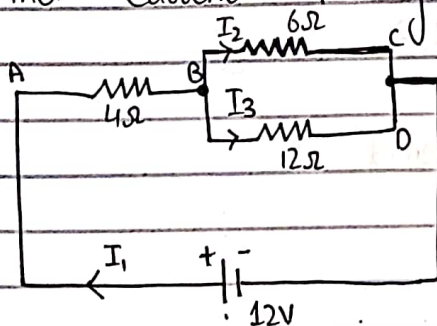 I₂ 6Ω C
A B
4Ω I₃
12Ω D
I₁ + -
12V